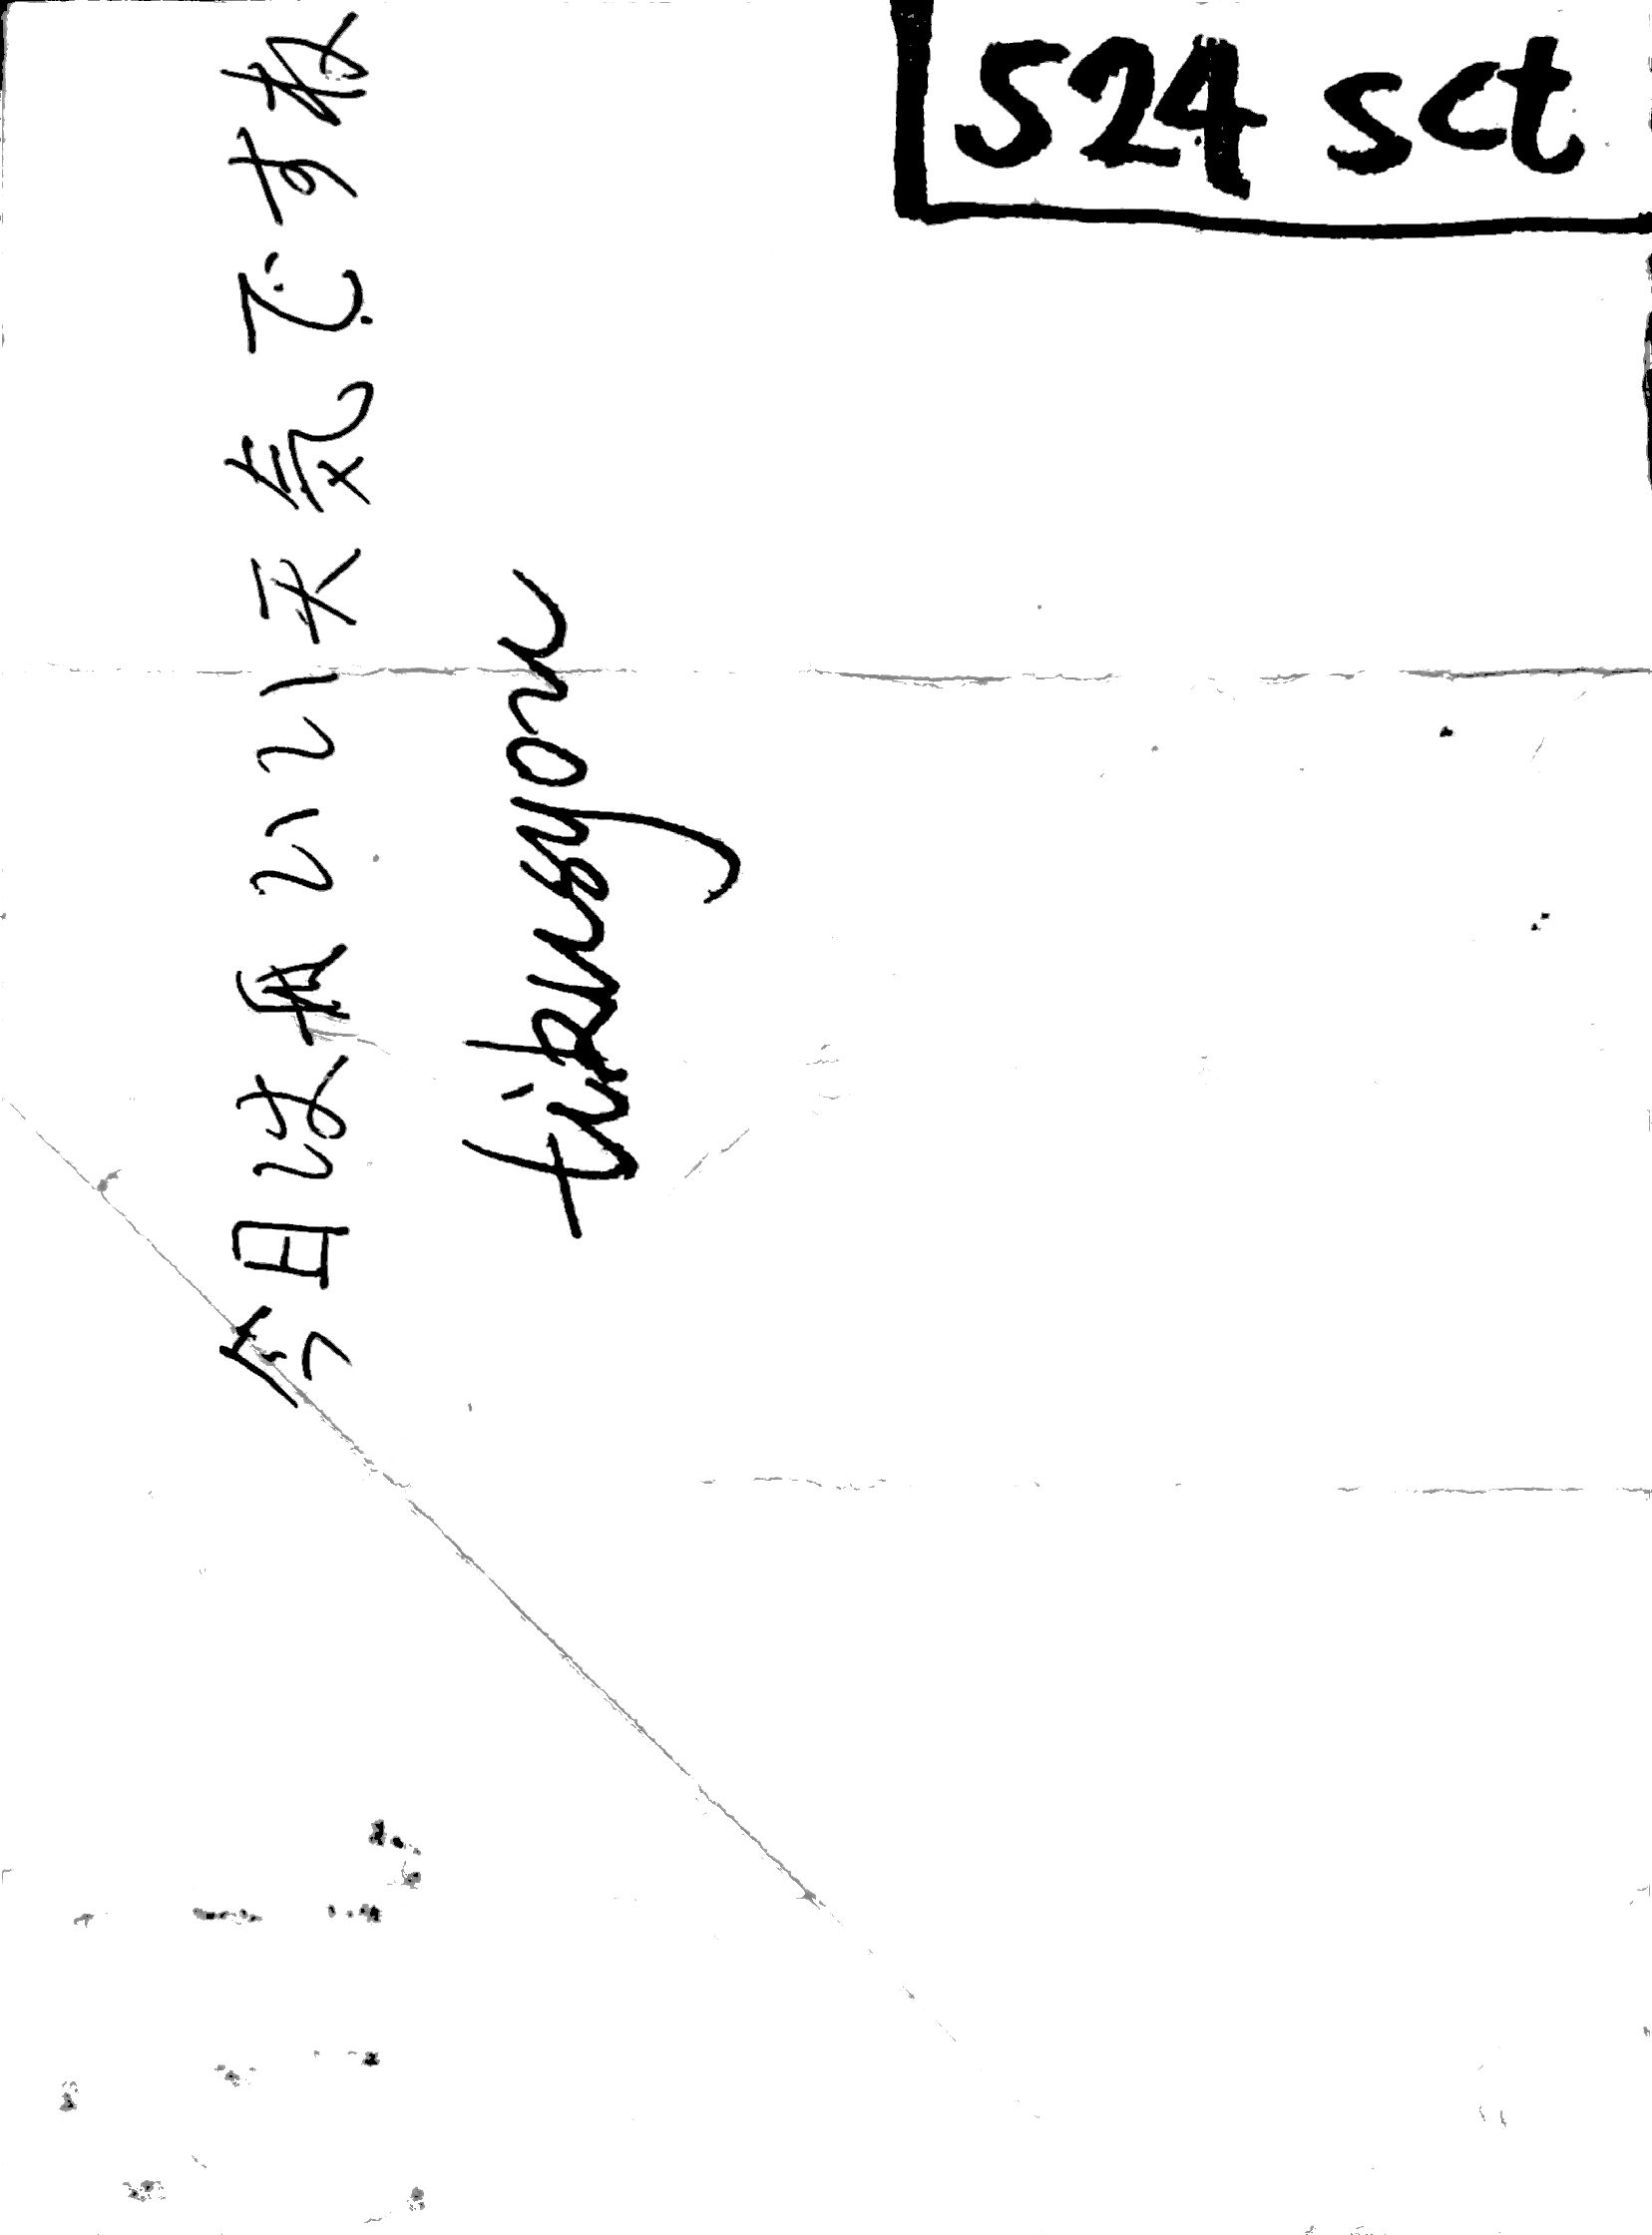 S24 sct
今日はいい天気ですね
tikusyou